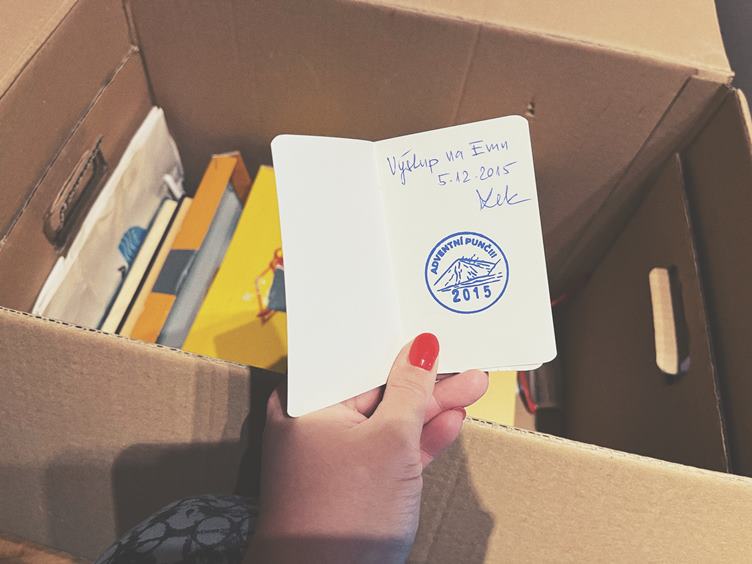 Výstup na Emu
5.12.2015
ADVENTNÍ PUNČ!!!
2015